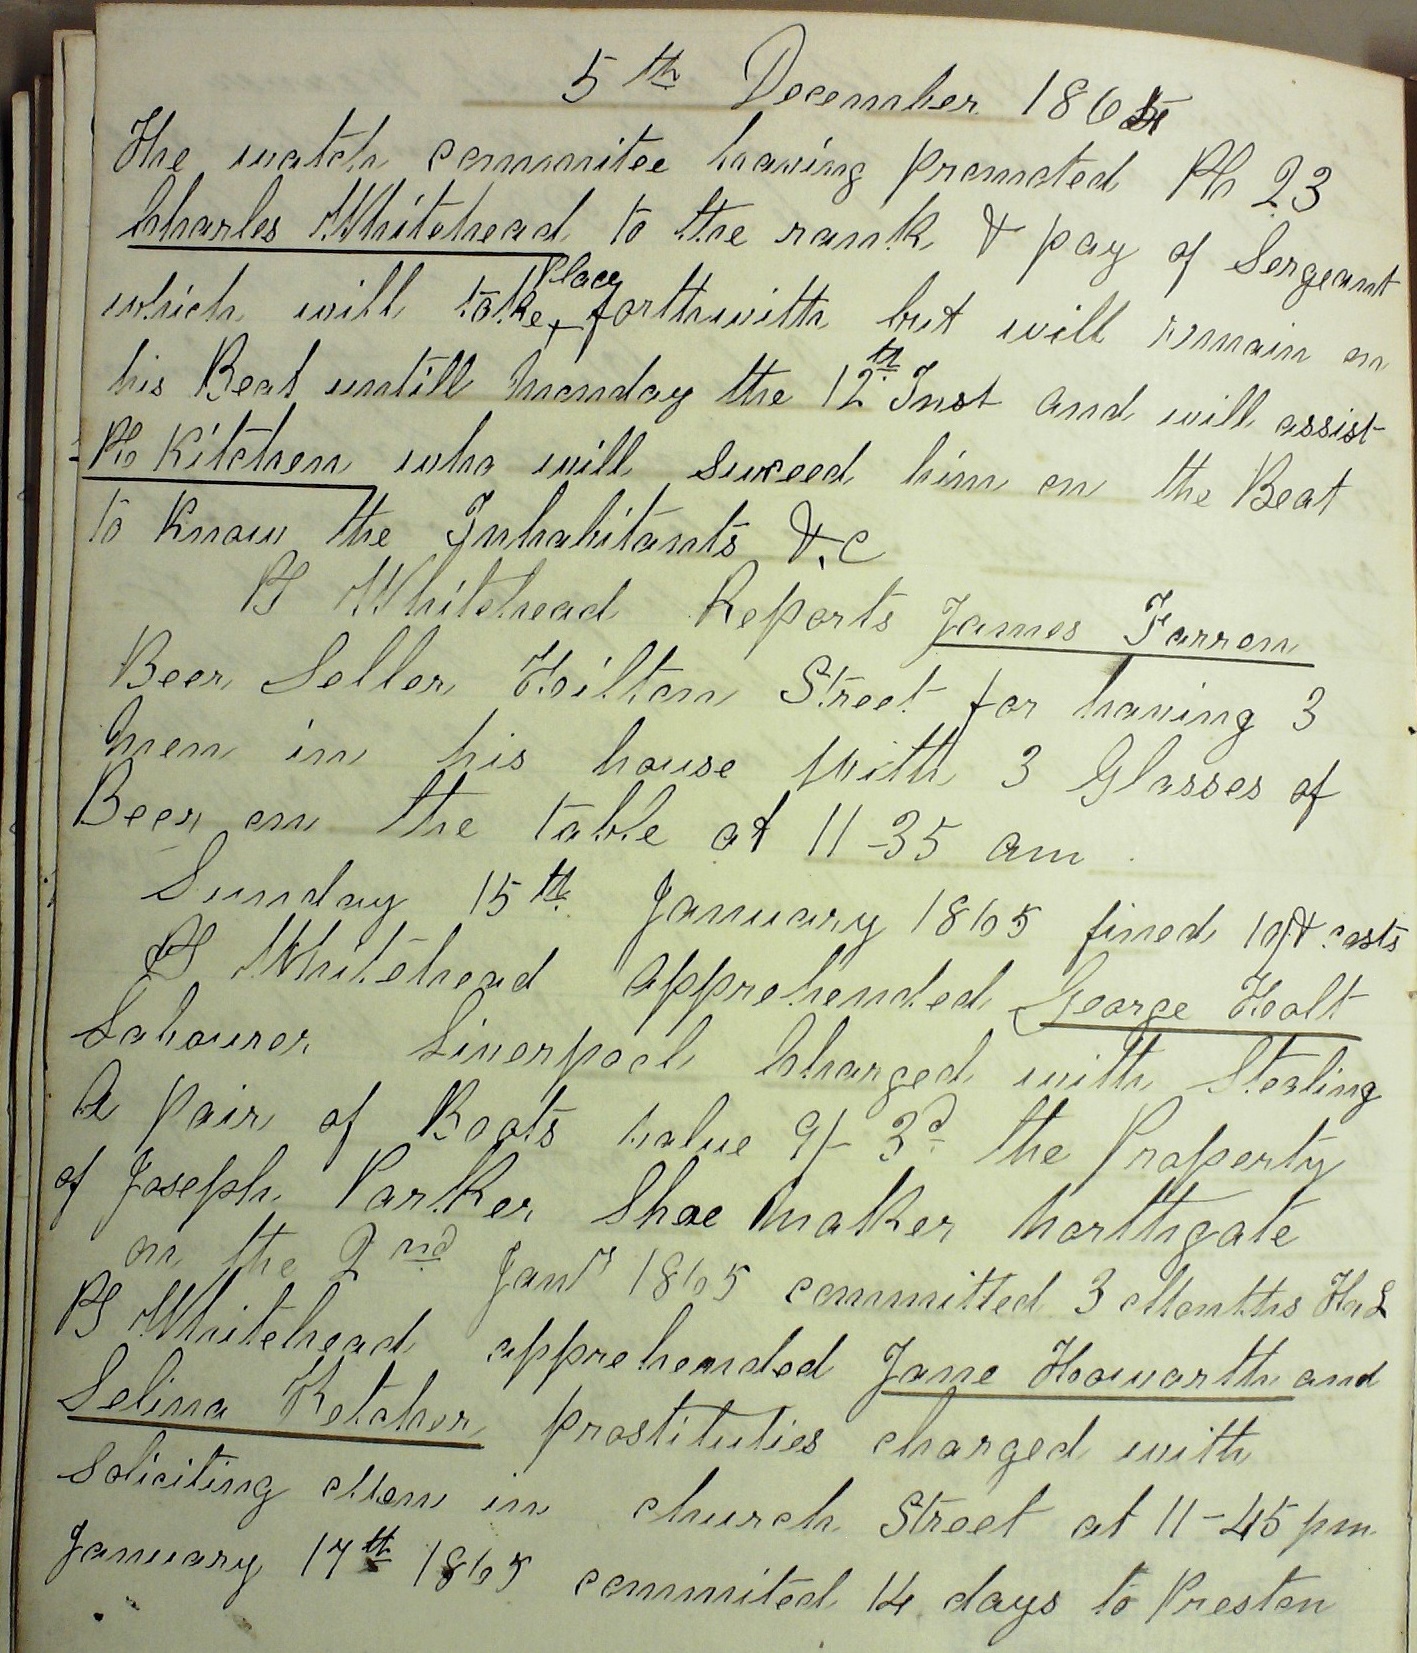 5th December 1864
The watch commitee having promoted PC 23
Charles Whitehead to the rank & pay of Sergeant
which will take place forthwith but will remain on
his Beat untill Monday the 12th Inst and will assist
PC Kitchen who will suxceed him on the Beat
to know the Inhabitants &.c
PS Whitehead Reports James Farron
Beer Seller Hilton Street for having 3
Men in his house with 3 Glasses of
Beer on the table at 11-35 am
Sunday 15th January 1865 fined 10/ & costs
PS Whitehead apprehended George Hoolt
Labourer Liverpool Charged with Stealing
A pair of Boots value 9/- 3d the Property
of Joseph Parker Shoe Maker Northgate
on the 2nd Jany 1865 committed 3 Months H L
PS Whitehead apprehended Jane Howorth and
Selina Ketcher prostituties charged with
Soliciting Men in church Street at 11-45 pm
January 17th 1865 commited 14 days to Preston